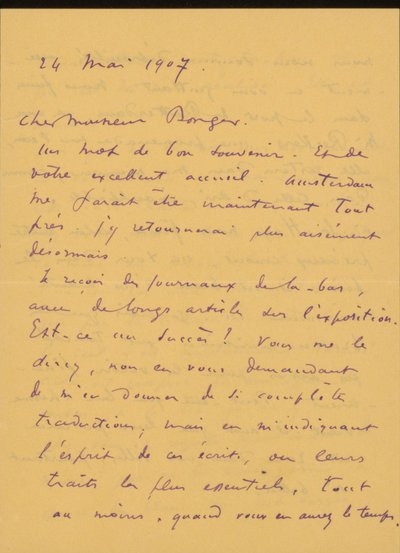 24 Mai 1907.
cher Monsieur Bonger.
Un mot de bon souvenir. Et de
votre excellent accueil. Amsterdam
me paraît être maintenant tout
près j'y retournerai plus aisément
désormais
Je reçois des journaux de la-bas,
avec de longs articles sur l'exposition.
Est-ce un succès! Vous me le
direz, non en vous demandant
de m'en donner de si complète
traduction, mais en m'indiquant
l'esprit de ces écrits, ou leurs
traits les plus essentiels, tout
au moins, quand vous en aurez le temps.